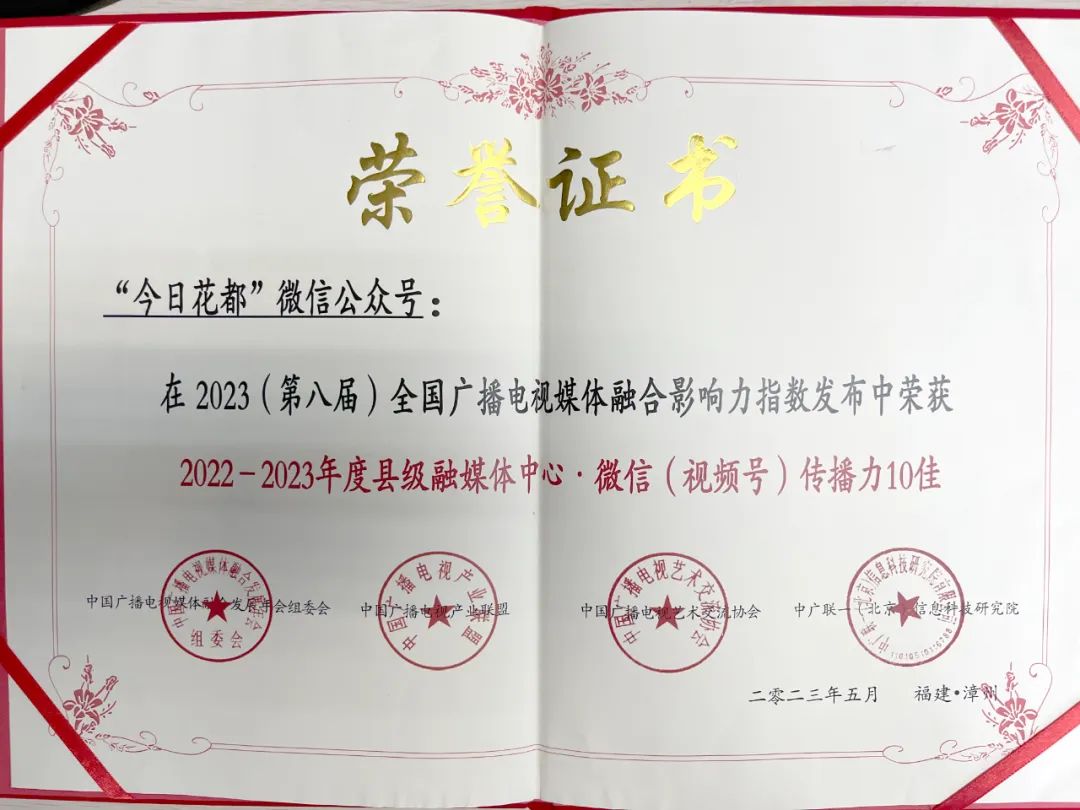 荣誉证书
“今日花都”微信公众号：
在 2023（第八届）全国广播电视媒体融合影响力指数发布中荣获
2022－2023年度县级融媒体中心·微信（视频号）传播力10佳
中国广播电视媒体融合发展年会组委会 中国广播电视产业联盟 中国广播电视艺术交流协会 中广联一（北京）信息科技研究院
组委会
中国广播电视产业联盟
中国广播电视艺术交流协会
二零二三年五月 福建·漳州